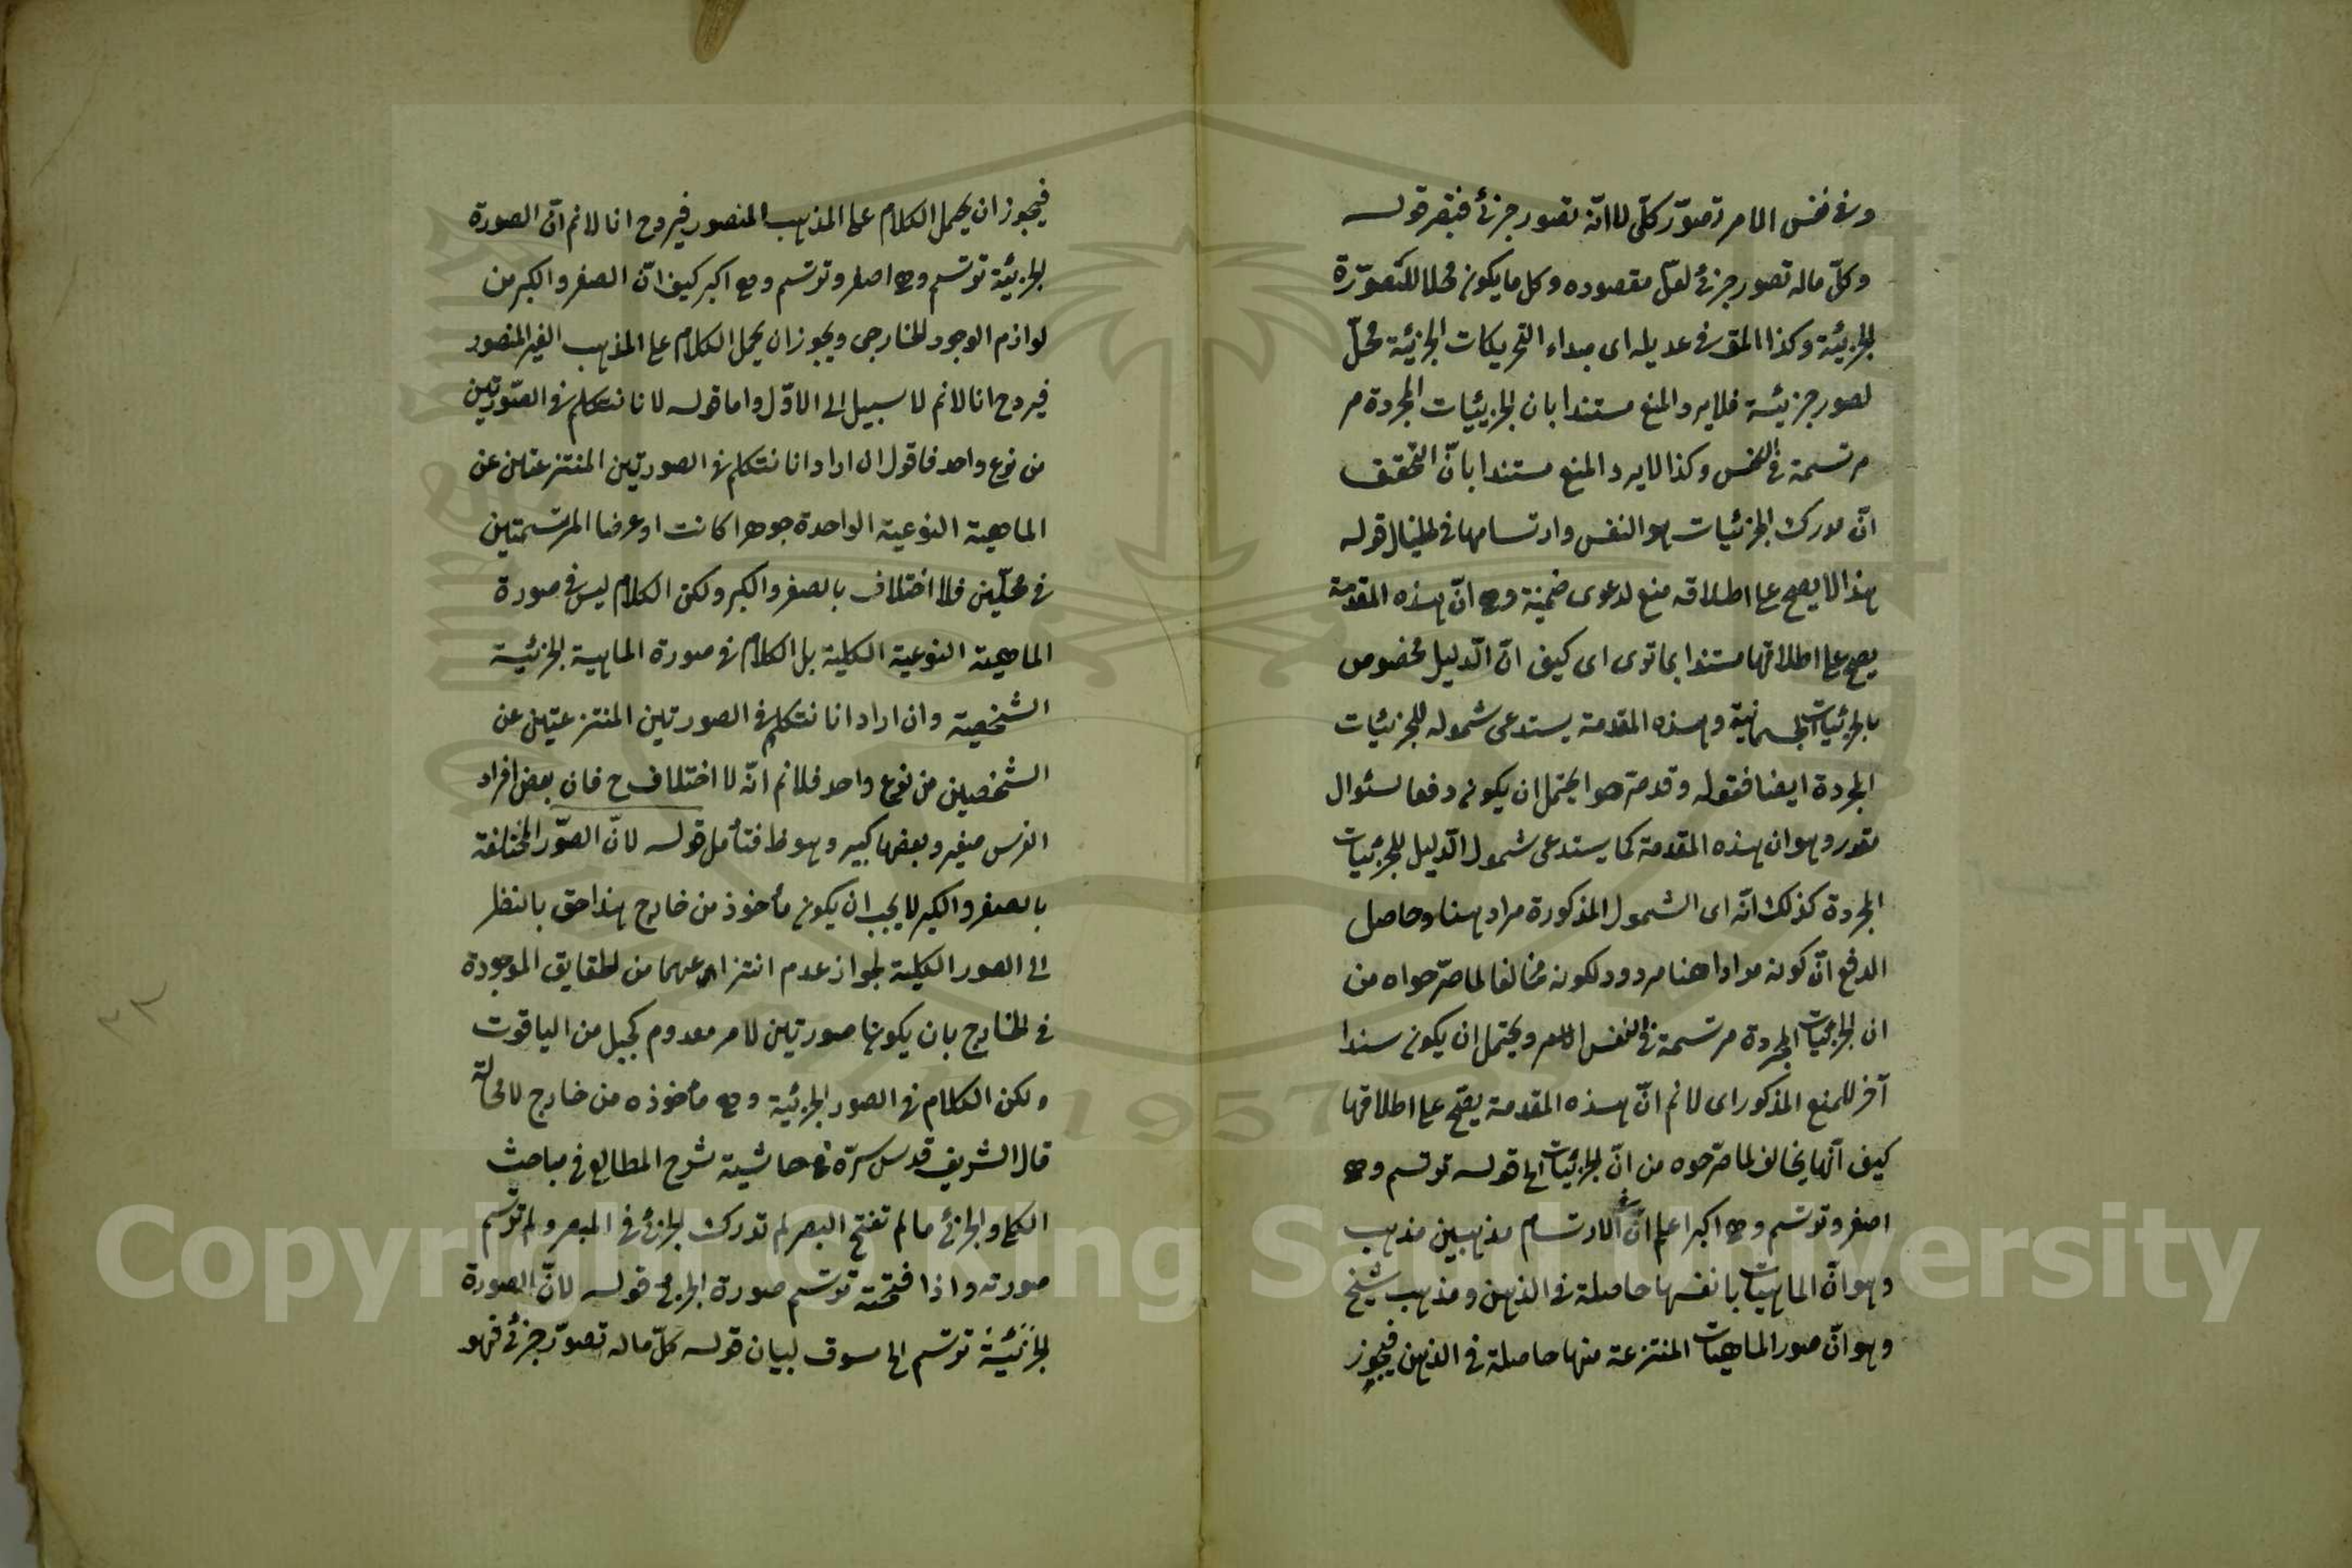 وفى نفس الامر تصوّر كلّى لا انّه تصور جزئى فبقر قوله
وكلّ ماله تصور جزئى لعلّ مقصوده وكل ما يكون محلا للتصوّرة
الجزئية وكذا المق فى عديله اى مبداء التحريكات الجزئية محلّ
لصور جزئية فلا يرد المنع مستندا بان الجزئيات المجردة م
مرتسمة فى النفس وكذا لا يرد المنع مستندا بانّ التحقيق
انّ مدرك الجزئيات هو النفس وارتسامها فى الخيال قوله
هذا لا يصح على اطلاقه منع لدعوى ضمنية وهى انّ هذه المقدمة
يصح على اطلاقها مستندا بما ترى اى كيف انّ الدليل مخصوص
بالجزئيات الجسمانية وهذه المقدمة يستدعى شموله للجزئيات
المجردة ايضا فقوله وقد صرحوا يحتمل ان يكون دفعا لسئوال
مقدر وهو ان هذه المقدمة كما يستدعى شمول الدليل للجزئيات
المجردة كذلك انّه اى الشمول المذكورة مراد هنا وحاصل
الدفع انّ كونه مرادا هنا مردود لكونه مخالفا لما صرّحواه من
ان الجزئيات المجردة مرتسمة فى النفس ويحتمل ان يكون سندا
آخر للمنع المذكور اى لا نم انّ هذه المقدمة يصحّ على اطلاقها
كيف انّها يخالف لما صرّحوه من انّ الجزئيات الى قوله ترتسم وهى
اصغر وترتسم وهى اكبر اعلم انّ فى الارتسام مذهبين مذهب
وهو انّ الماهيات بانفسها حاصلة فى الذهن ومذهب شيخ
وهو انّ صور الماهيات المنتزعة منها حاصلة فى الذهن فيجوز
فيجوز ان يحمل الكلام على المذهب المنصور فيرد ح انا لا نم انّ الصورة
الجزئية ترتسم وهى اصغر وترتسم وهى اكبر كيف انّ الصغر والكبر من
لوازم الوجود الخارجى ويجوز ان يحمل الكلام على المذهب الغير المنصور
فيرد ح انا لا نم لا سبيل الى الاوّل واما قوله لانا نتكلم فى الصّورتين
من نوع واحد فاقول ان اراد انا نتكلم فى الصورتين المنتزعتين عن
الماهية النوعية الواحدة جوهرا كانت او عرضا المرتسمتين
فى محلّين فلا اختلاف بالصغر والكبر ولكن الكلام ليس فى صورة
الماهية النوعية الكلية بل الكلام فى صورة الماهية الجزئية
الشخصية وان اراد انا نتكلم فى الصورتين المنتزعتين عن
الشخصين من نوع واحد فلا نم انّه لا اختلاف ح فان بعض افراد
الفرس صغير وبعضها كبير وهو ظ فتأمل قوله لانّ الصّور المختلفة
بالصغر والكبر لا يجب ان يكون مأخوذ من خارج هذا حق بالنظر
الى الصور الكلية لجواز عدم انتزاعهما من الحقايق الموجودة
فى الخارج بان يكونا صورتين لامر معدوم كجبل من الياقوت
ولكن الكلام فى الصور الجزئية وهى مأخوذه من خارج لا محالة
قال الشريف قدس سرّه فى حاشية شرح المطالع فى مباحث
الكلى والجزئى ما لم تفتح البصر لم تدرك الجزئى فى المبصر ولم ترتسم
صورته واذا فتحته ترتسم صورة الجزئى قوله لانّ الصورة
الجزئية ترتسم الى سوف لبيان قوله كلّ ماله تصوّر جزئى فهو
٢٢
1957
Copyright © King Saud University